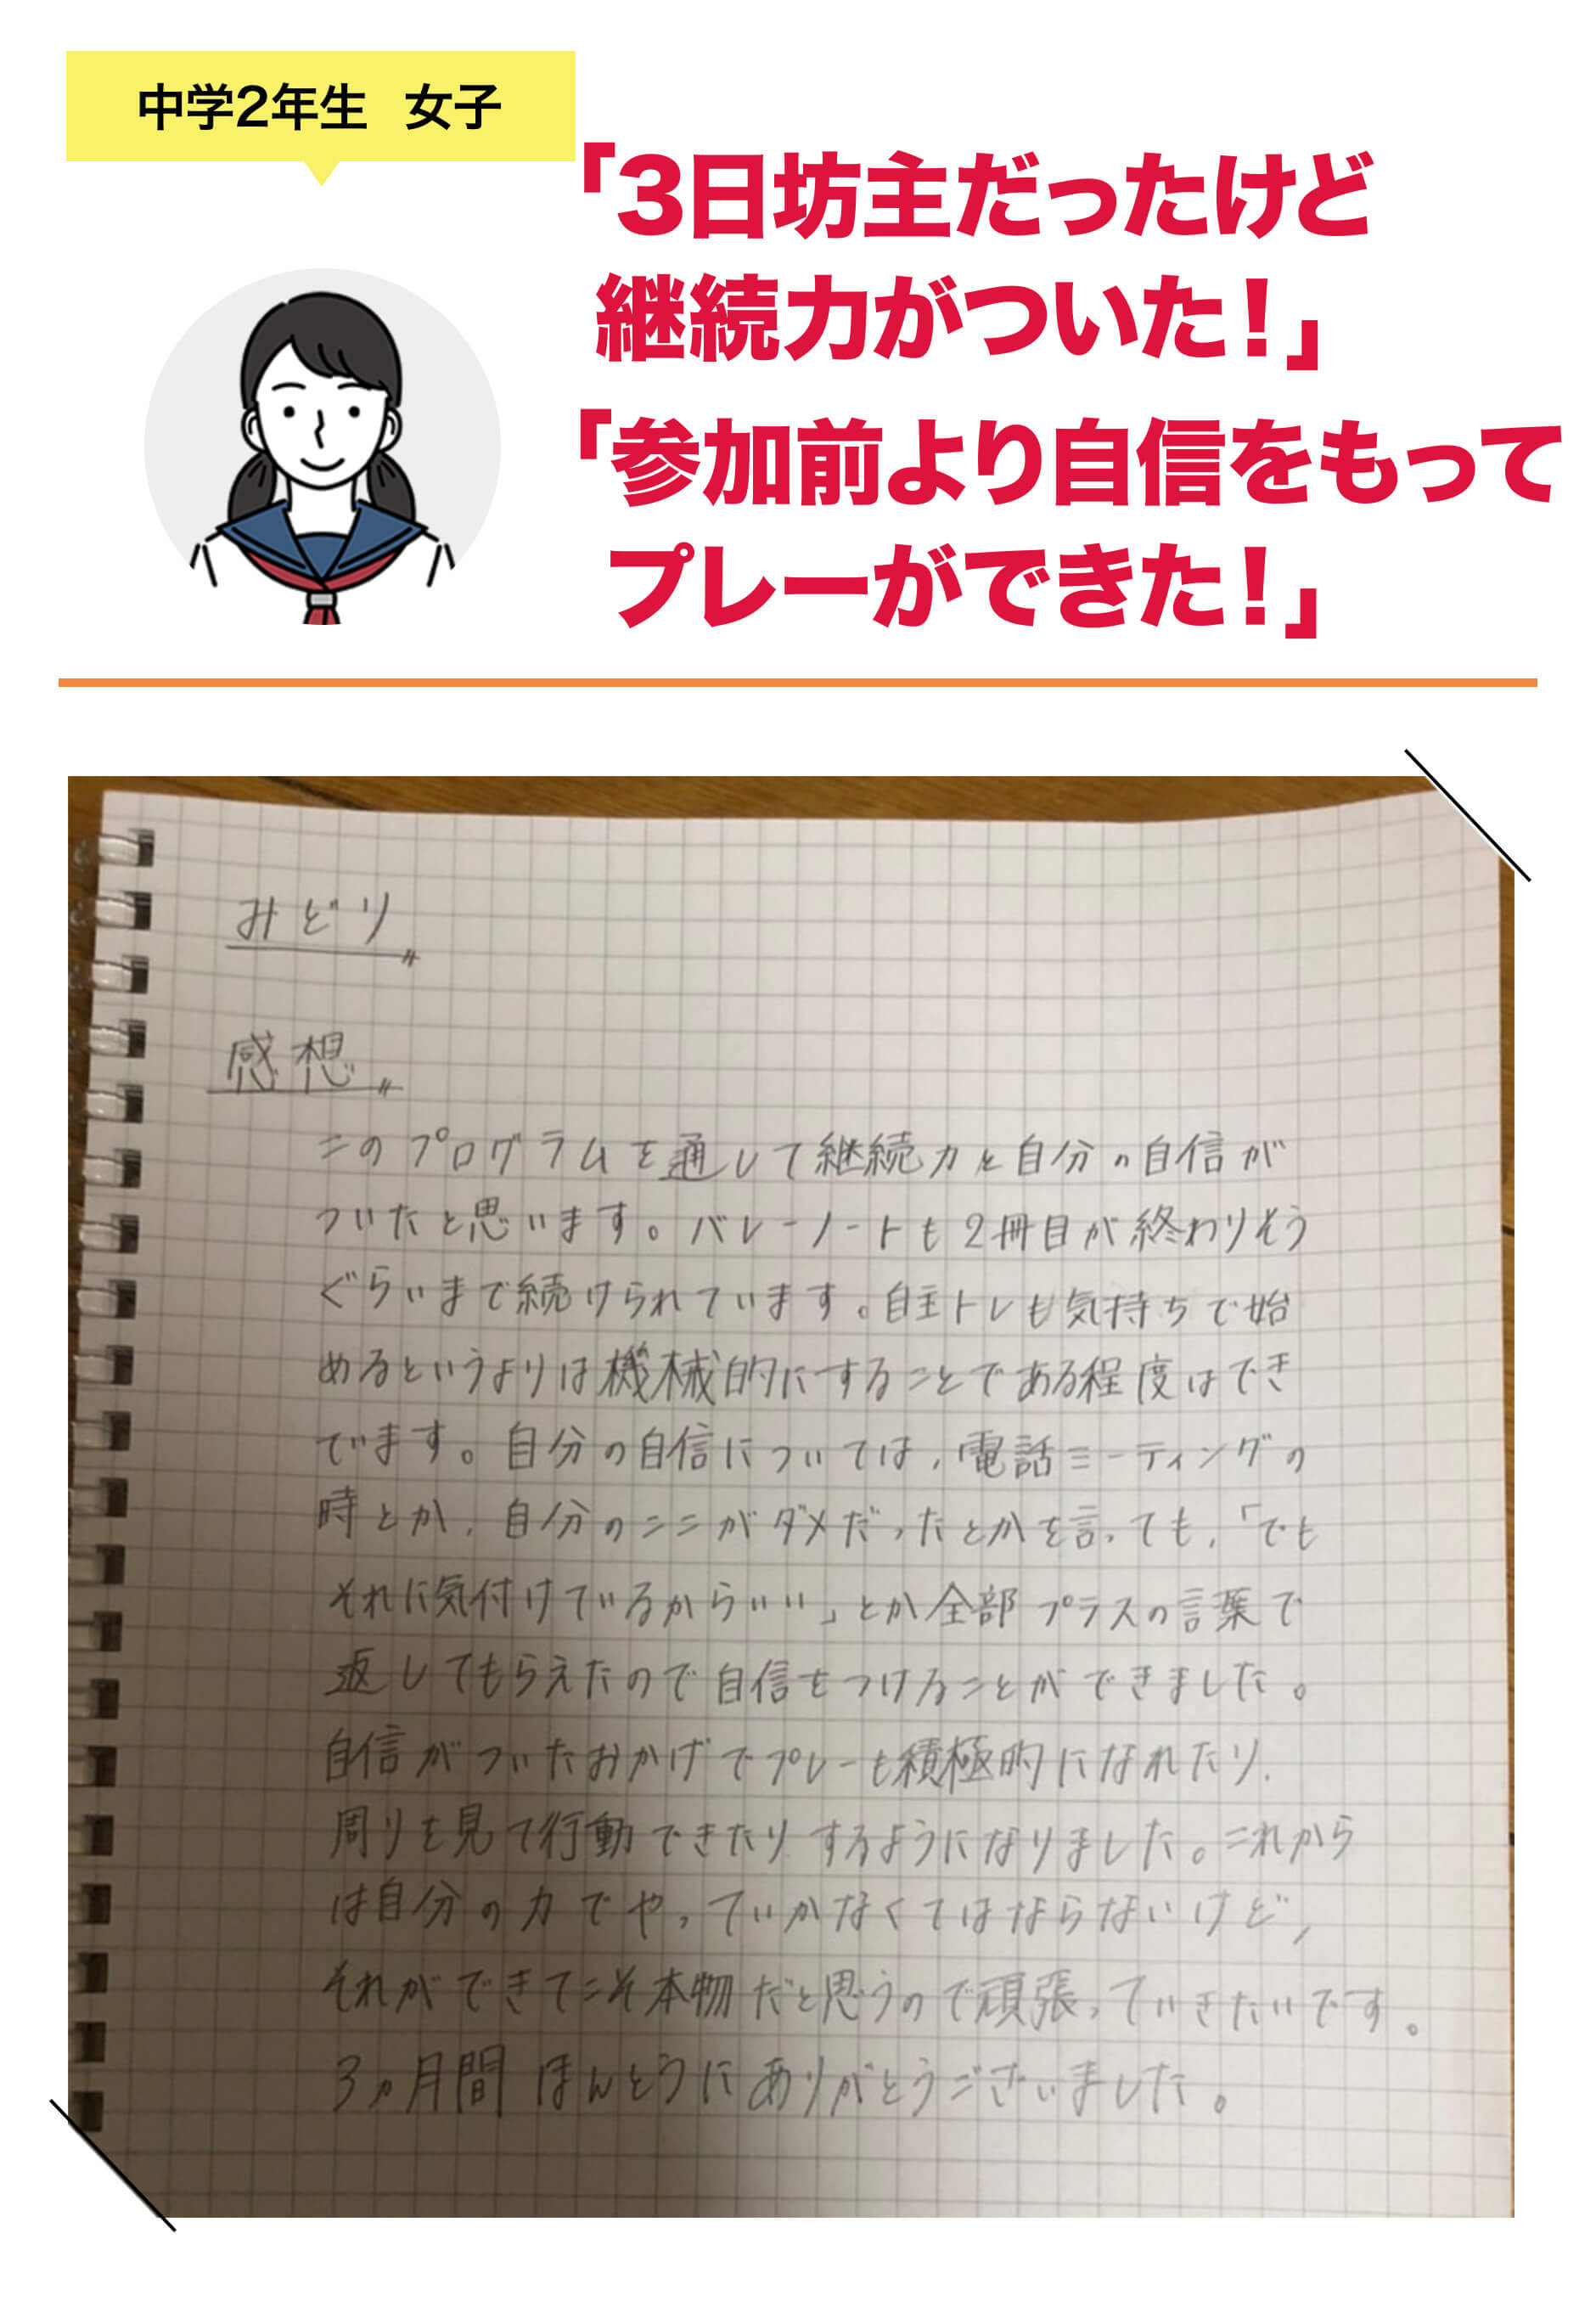 中学2年生 女子
「3日坊主だったけど
継続力がついた!」
「参加前より自信をもって
プレーができた!」
みどり
感想
このプログラムを通して継続力と自分の自信が
ついたと思います。バレーノートも2冊目が終わりそう
ぐらいまで続けられています。自主トレも気持ちで始
めるというよりは機械的にすることである程度はでき
ています。自分の自信については、電話ミーティングの
時とか、自分のここがダメだったとかを言っても、「でも
それに気付けているからいい」とか全部プラスの言葉で
返してもらえたので自信をつけることができました。
自信がついたおかげでプレーも積極的になれたり、
周りを見て行動できたりするようになりました。これから
は自分の力でやっていかなくてはならないけど、
それができてこそ本物だと思うので頑張っていきたいです。
3ヵ月間ほんとうにありがとうございました。